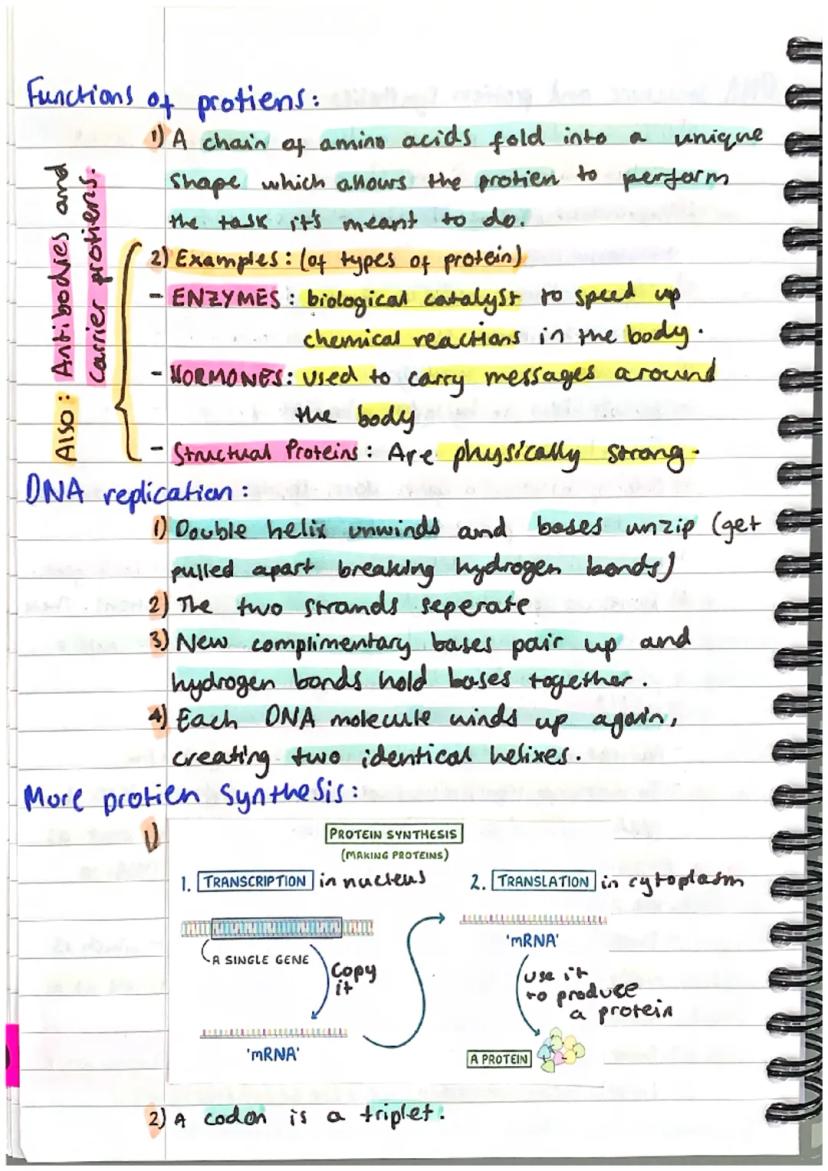 Functions of protiens:
1) A chain of amino acids fold into a unique
shape which allows the protien to perform
the task it's meant to do.
Also: Antibodies and
carrier protiens.
2) Examples: (of types of protein)
- ENZYMES: biological catalyst to speed up
chemical reactions in the body.
- HORMONES: used to carry messages around
the body
- Structual Proteins: Are physically strong.
DNA replication:
1) Double helix unwinds and bases unzip (get
pulled apart breaking hydrogen bonds)
2) The two strands seperate
3) New complimentary bases pair up and
hydrogen bonds hold bases together.
4) Each DNA molecule winds up again,
creating two identical helixes.
More protien synthesis:
1)
PROTEIN SYNTHESIS
(MAKING PROTEINS)
1. TRANSCRIPTION in nucleus
A SINGLE GENE
Copy
it
'mRNA'
2. TRANSLATION in cytoplasm
'mRNA'
use it
to produce
a protein
A PROTEIN
2) A codon is a triplet.